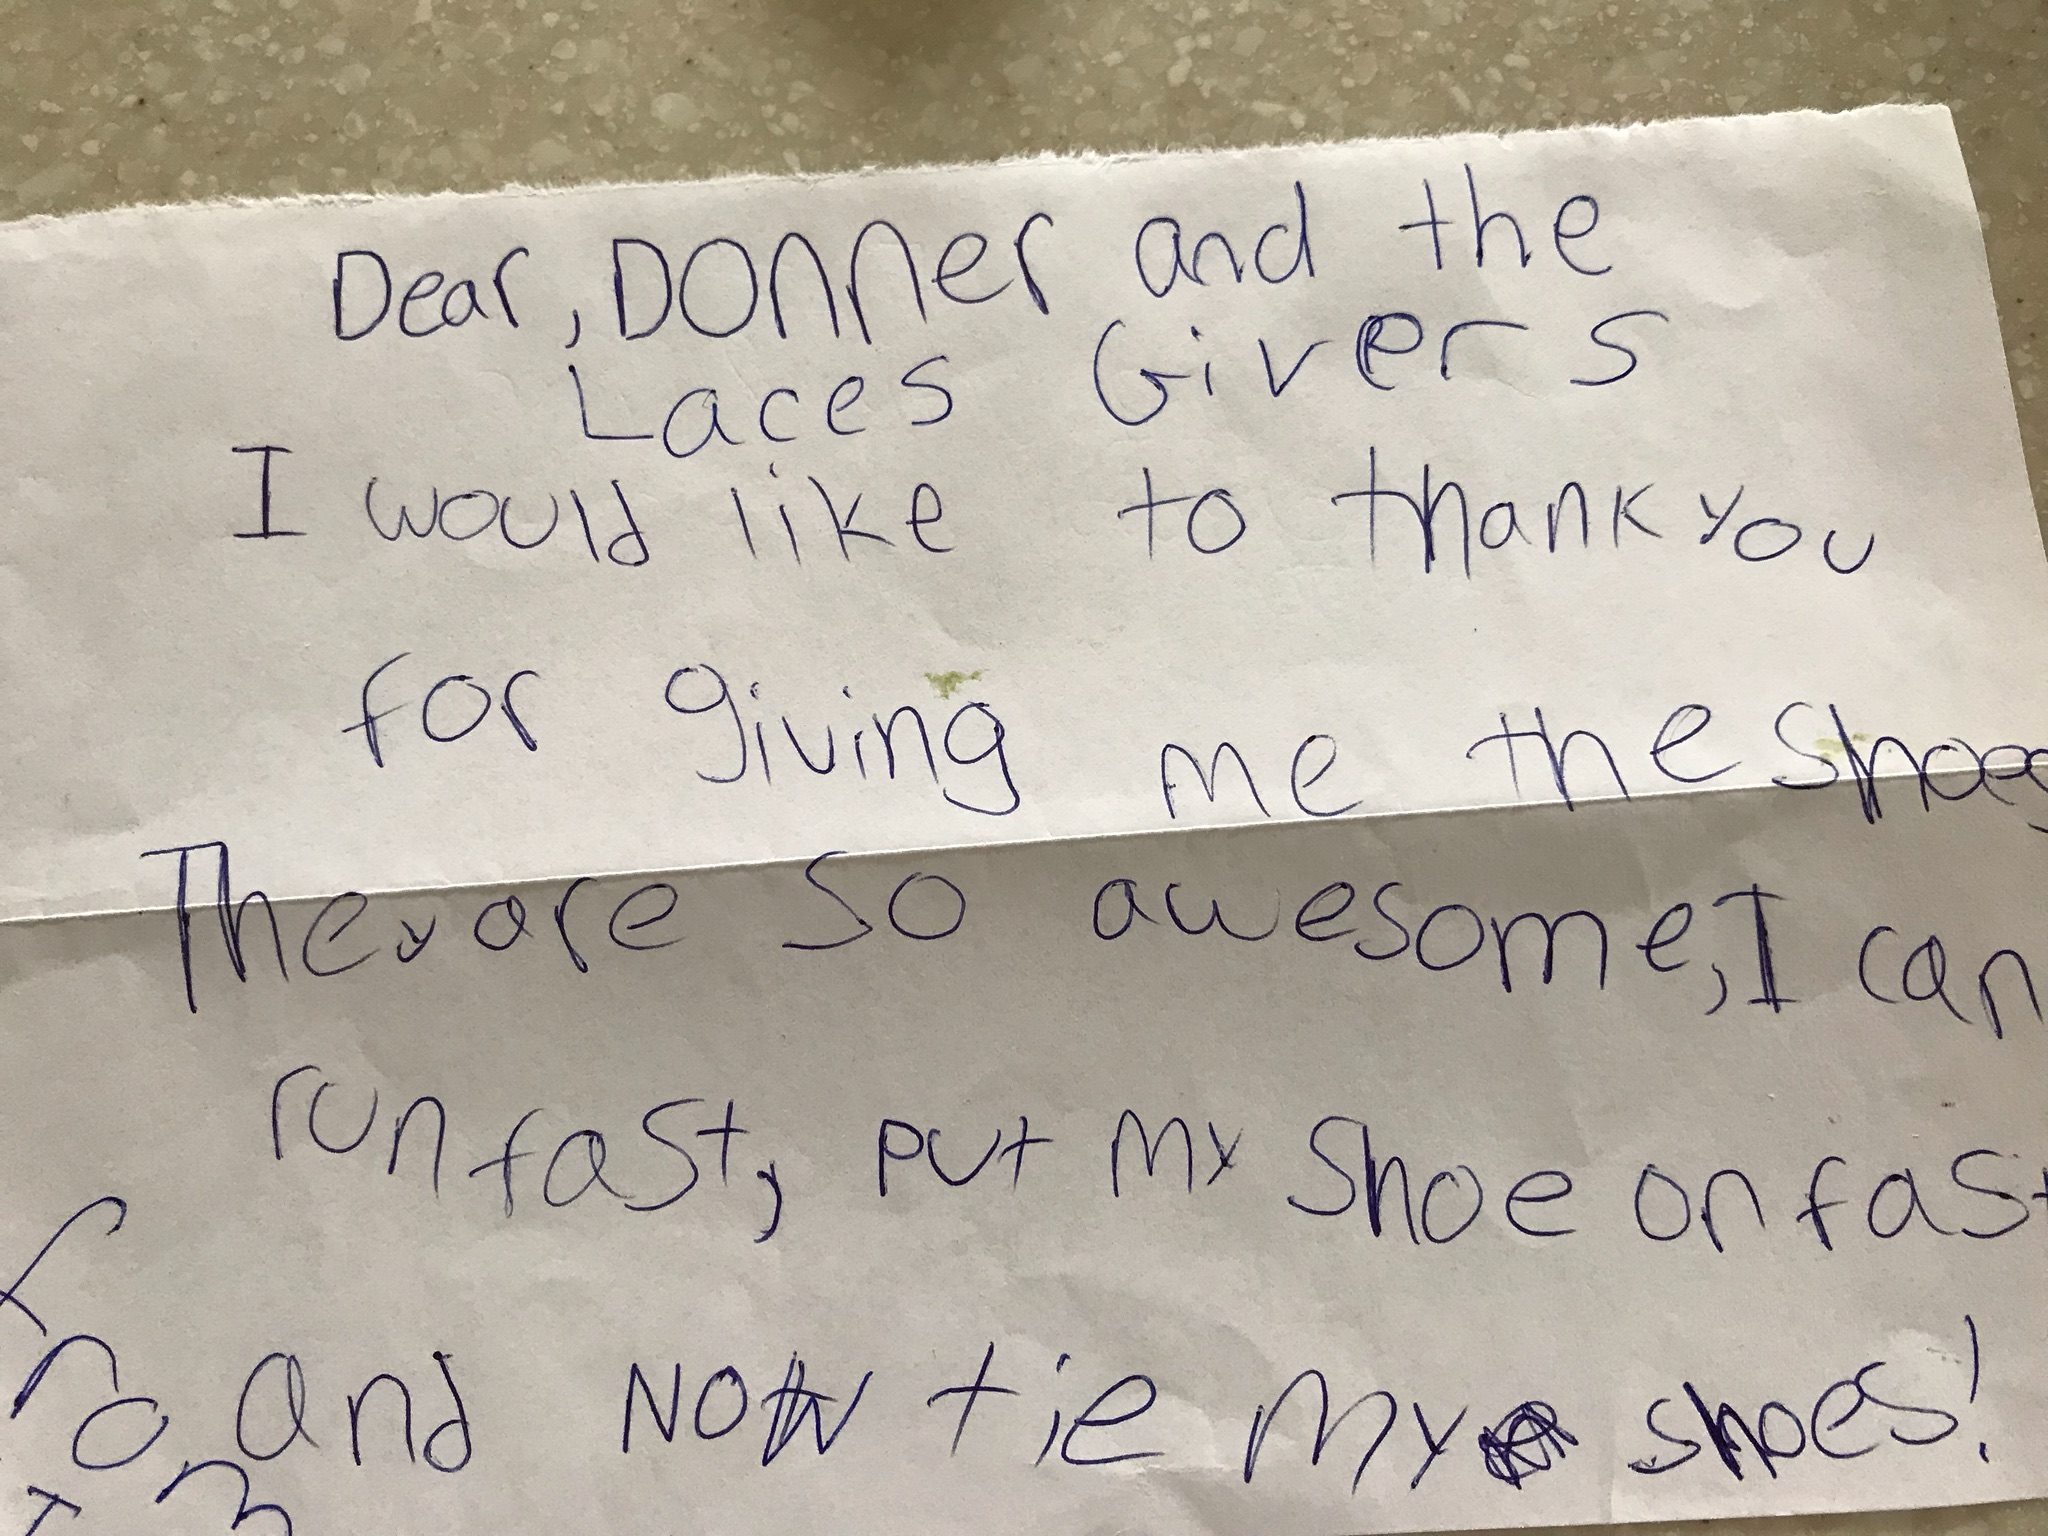 Dear, Donner and the
Laces Givers
I would like to thank you
for giving me the shoes
They are so awesome, I can
run fast, put my shoe on fast
and now tie my shoes!
from